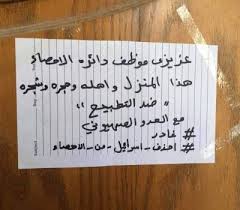 عزيزي موظف دائرة الاحصاء
هذا المنزل واهله وحجره وشجره
"ضد التطبيع"
مع العدو الصهيوني
# غادر
# احذف_اسرائيل_من_الاحصاء